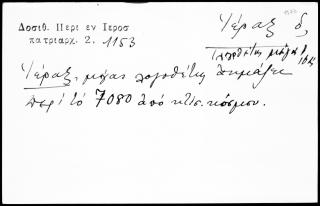 Δοσιθ. Περι εν Ιεροσ
πατριαρχ. 2. 1153
Ἱέραξ δ,
Λογοθέτης μέγας
Ἱέραξ, μέγας λογοθέτης ἤκμαζε
περὶ τὸ 7080 ἀπὸ κτίσ. κόσμου.